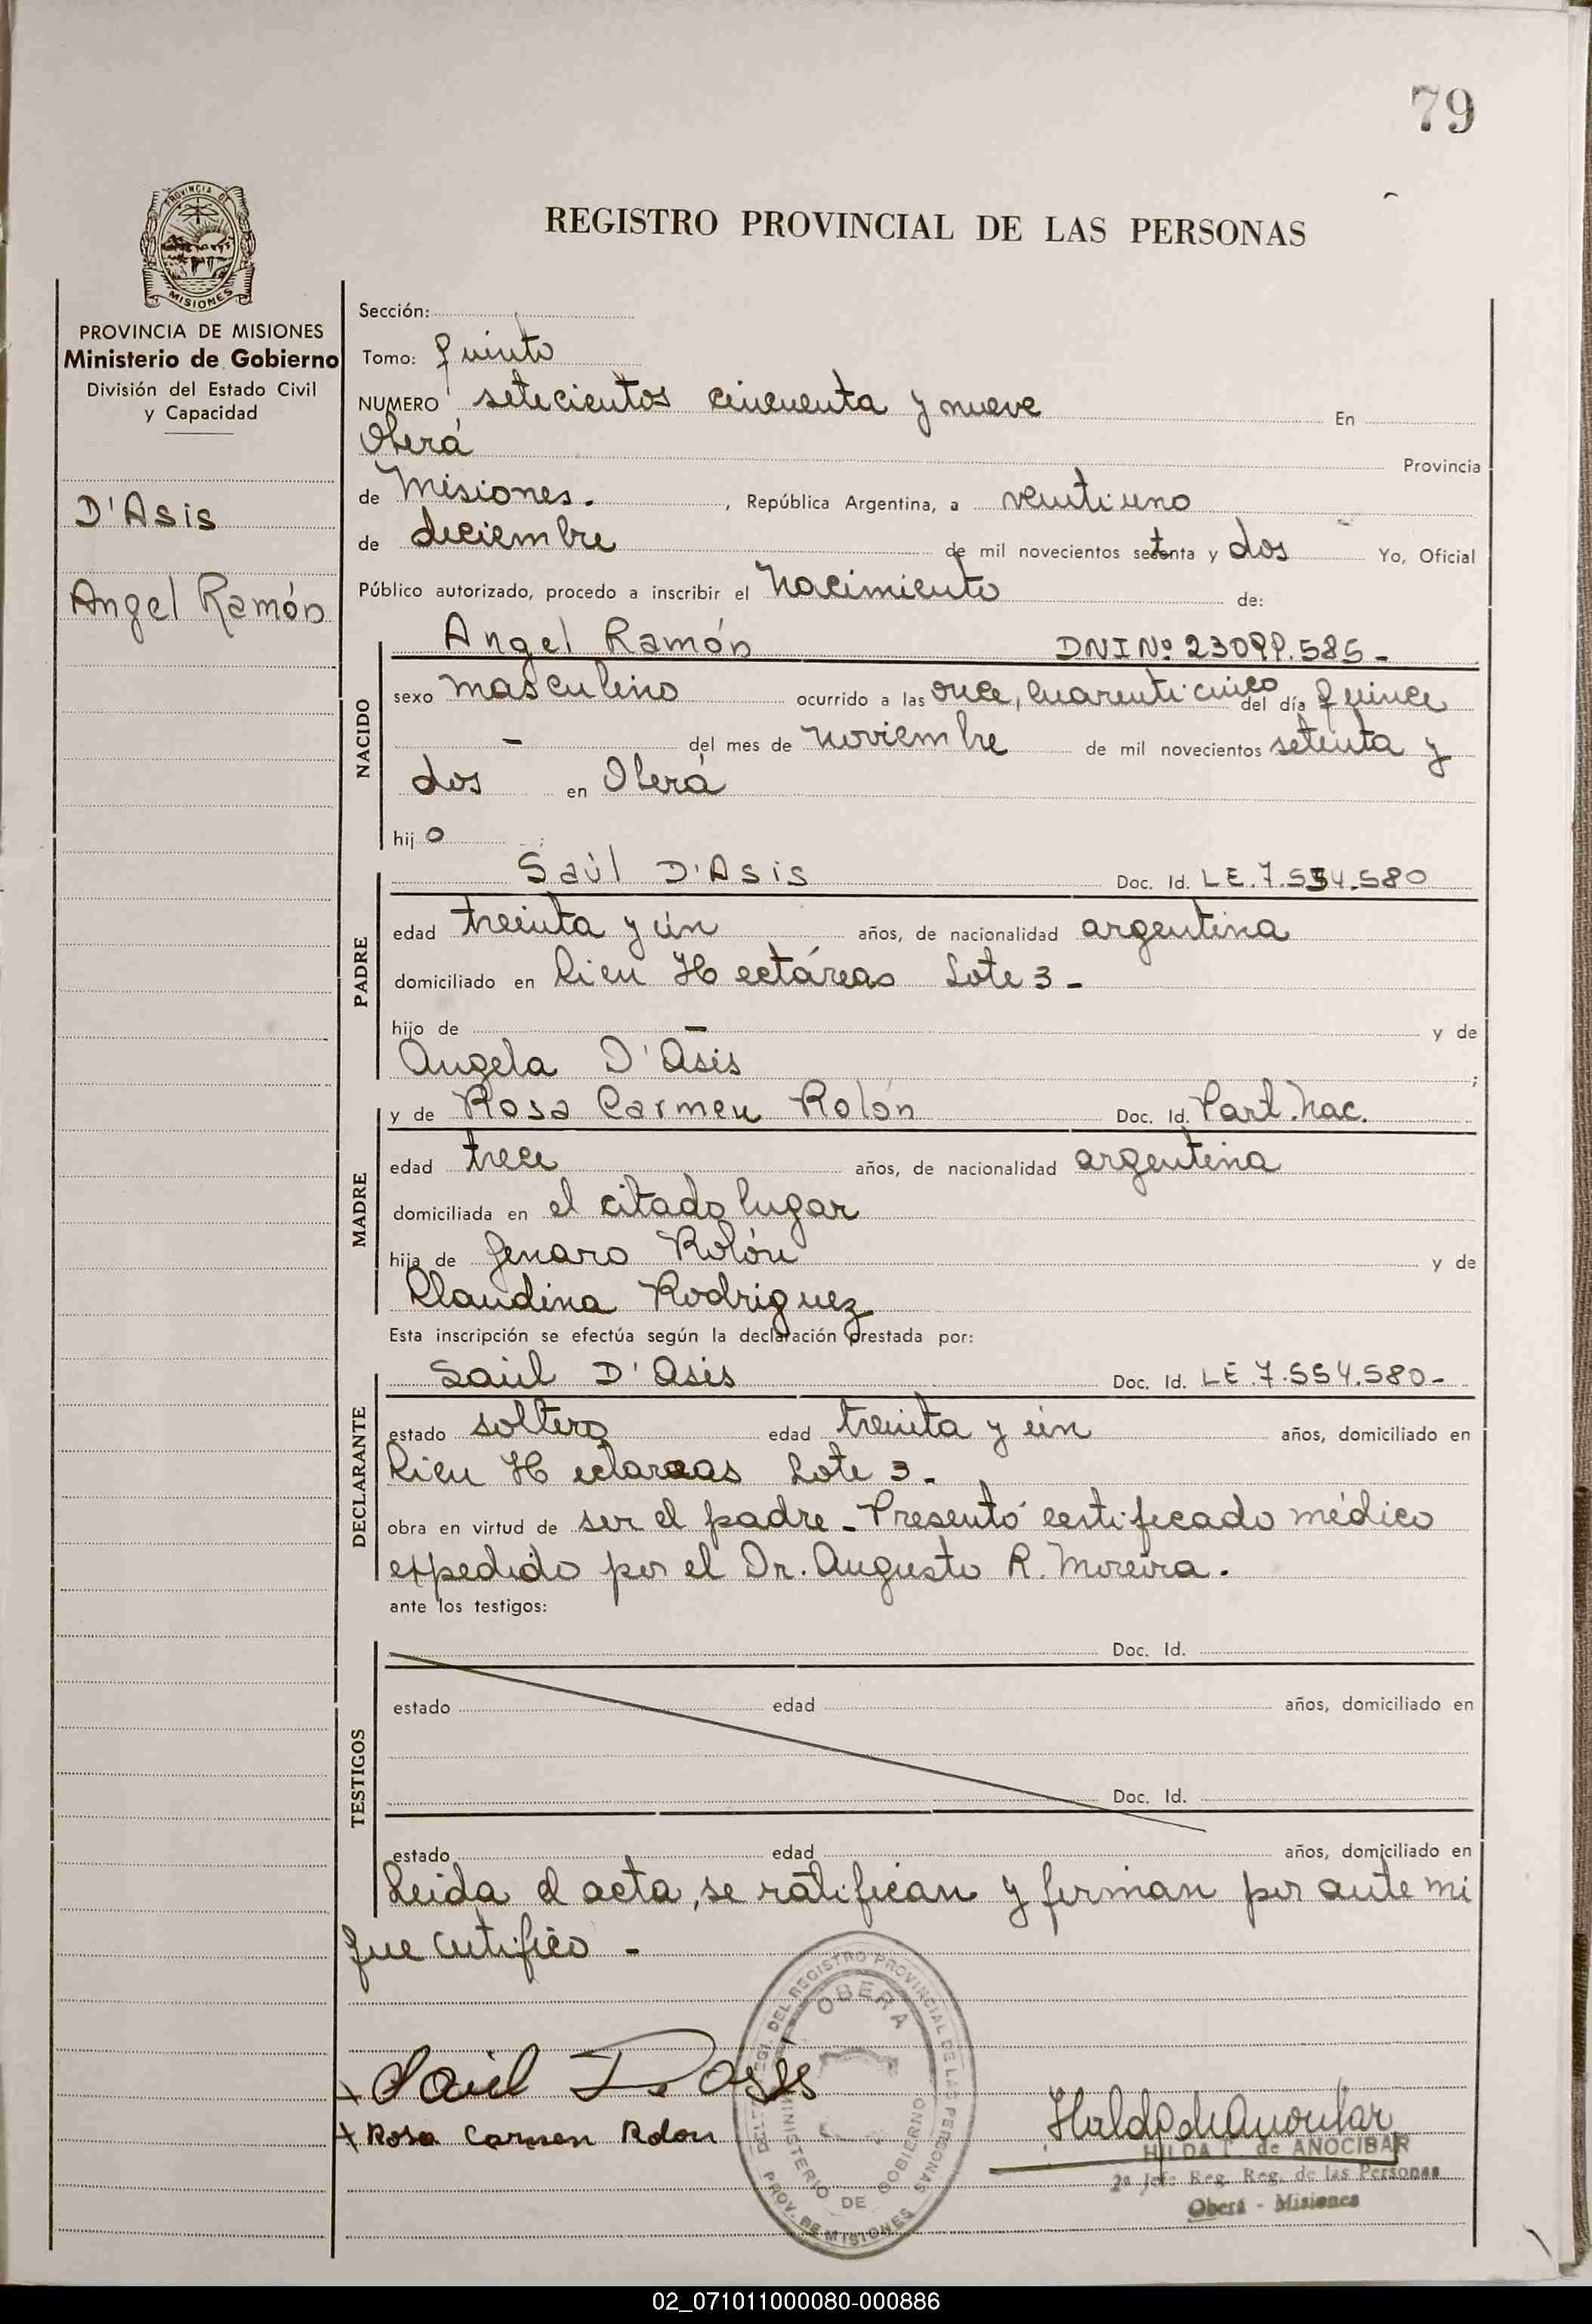 79
REGISTRO PROVINCIAL DE LAS PERSONAS
PROVINCIA DE
MISIONES
PROVINCIA DE MISIONES
Ministerio de Gobierno
División del Estado Civil
y Capacidad
D'Asis
Angel Ramón
Sección:
Tomo: quinto
NUMERO setecientos cincuenta y nueve En
Oberá Provincia
de Misiones. , República Argentina, a veintiuno
de diciembre de mil novecientos setenta y dos Yo, Oficial
Público autorizado, procedo a inscribir el Nacimiento de:
NACIDO
Angel Ramón DNI Nº 23099.585-
sexo masculino ocurrido a las once, cuarenticinco del día quince
- del mes de noviembre de mil novecientos setenta y
dos en Oberá
hijo
PADRE
Saúl D'Asis Doc. Id. LE.7.554.580
edad treinta y ún años, de nacionalidad argentina
domiciliado en Cien Hectáreas Lote 3-
hijo de - y de
Angela D'Asis ;
MADRE
y de Rosa Carmen Rolón Doc. Id. Part. Nac.
edad trece años, de nacionalidad argentina
domiciliada en el citado lugar
hija de Genaro Rolón y de
Claudina Rodriguez
Esta inscripción se efectúa según la declaración prestada por:
DECLARANTE
Saúl D'Asis Doc. Id. LE.7.554.580-
estado soltero edad treinta y ún años, domiciliado en
Cien Hectareas Lote 3-
obra en virtud de ser el padre - Presentó certificado médico
expedido por el Dr. Augusto R. Moreira.
ante los testigos:
TESTIGOS
Doc. Id.
estado edad años, domiciliado en
Doc. Id.
estado edad años, domiciliado en
Leida el acta, se ratifican y firman por ante mi
que certifico -
DEL REGISTRO PROVINCIAL DE LAS PERSONAS
OBERA
MINISTERIO DE GOBIERNO
PROV. DE MISIONES
+ Saúl D'Asis
+ Rosa Carmen Rolon
HILDA de ANOCIBAR
2a Jefe Reg. Reg. de las Personas
Oberá - Misiones
02_071011000080-000886